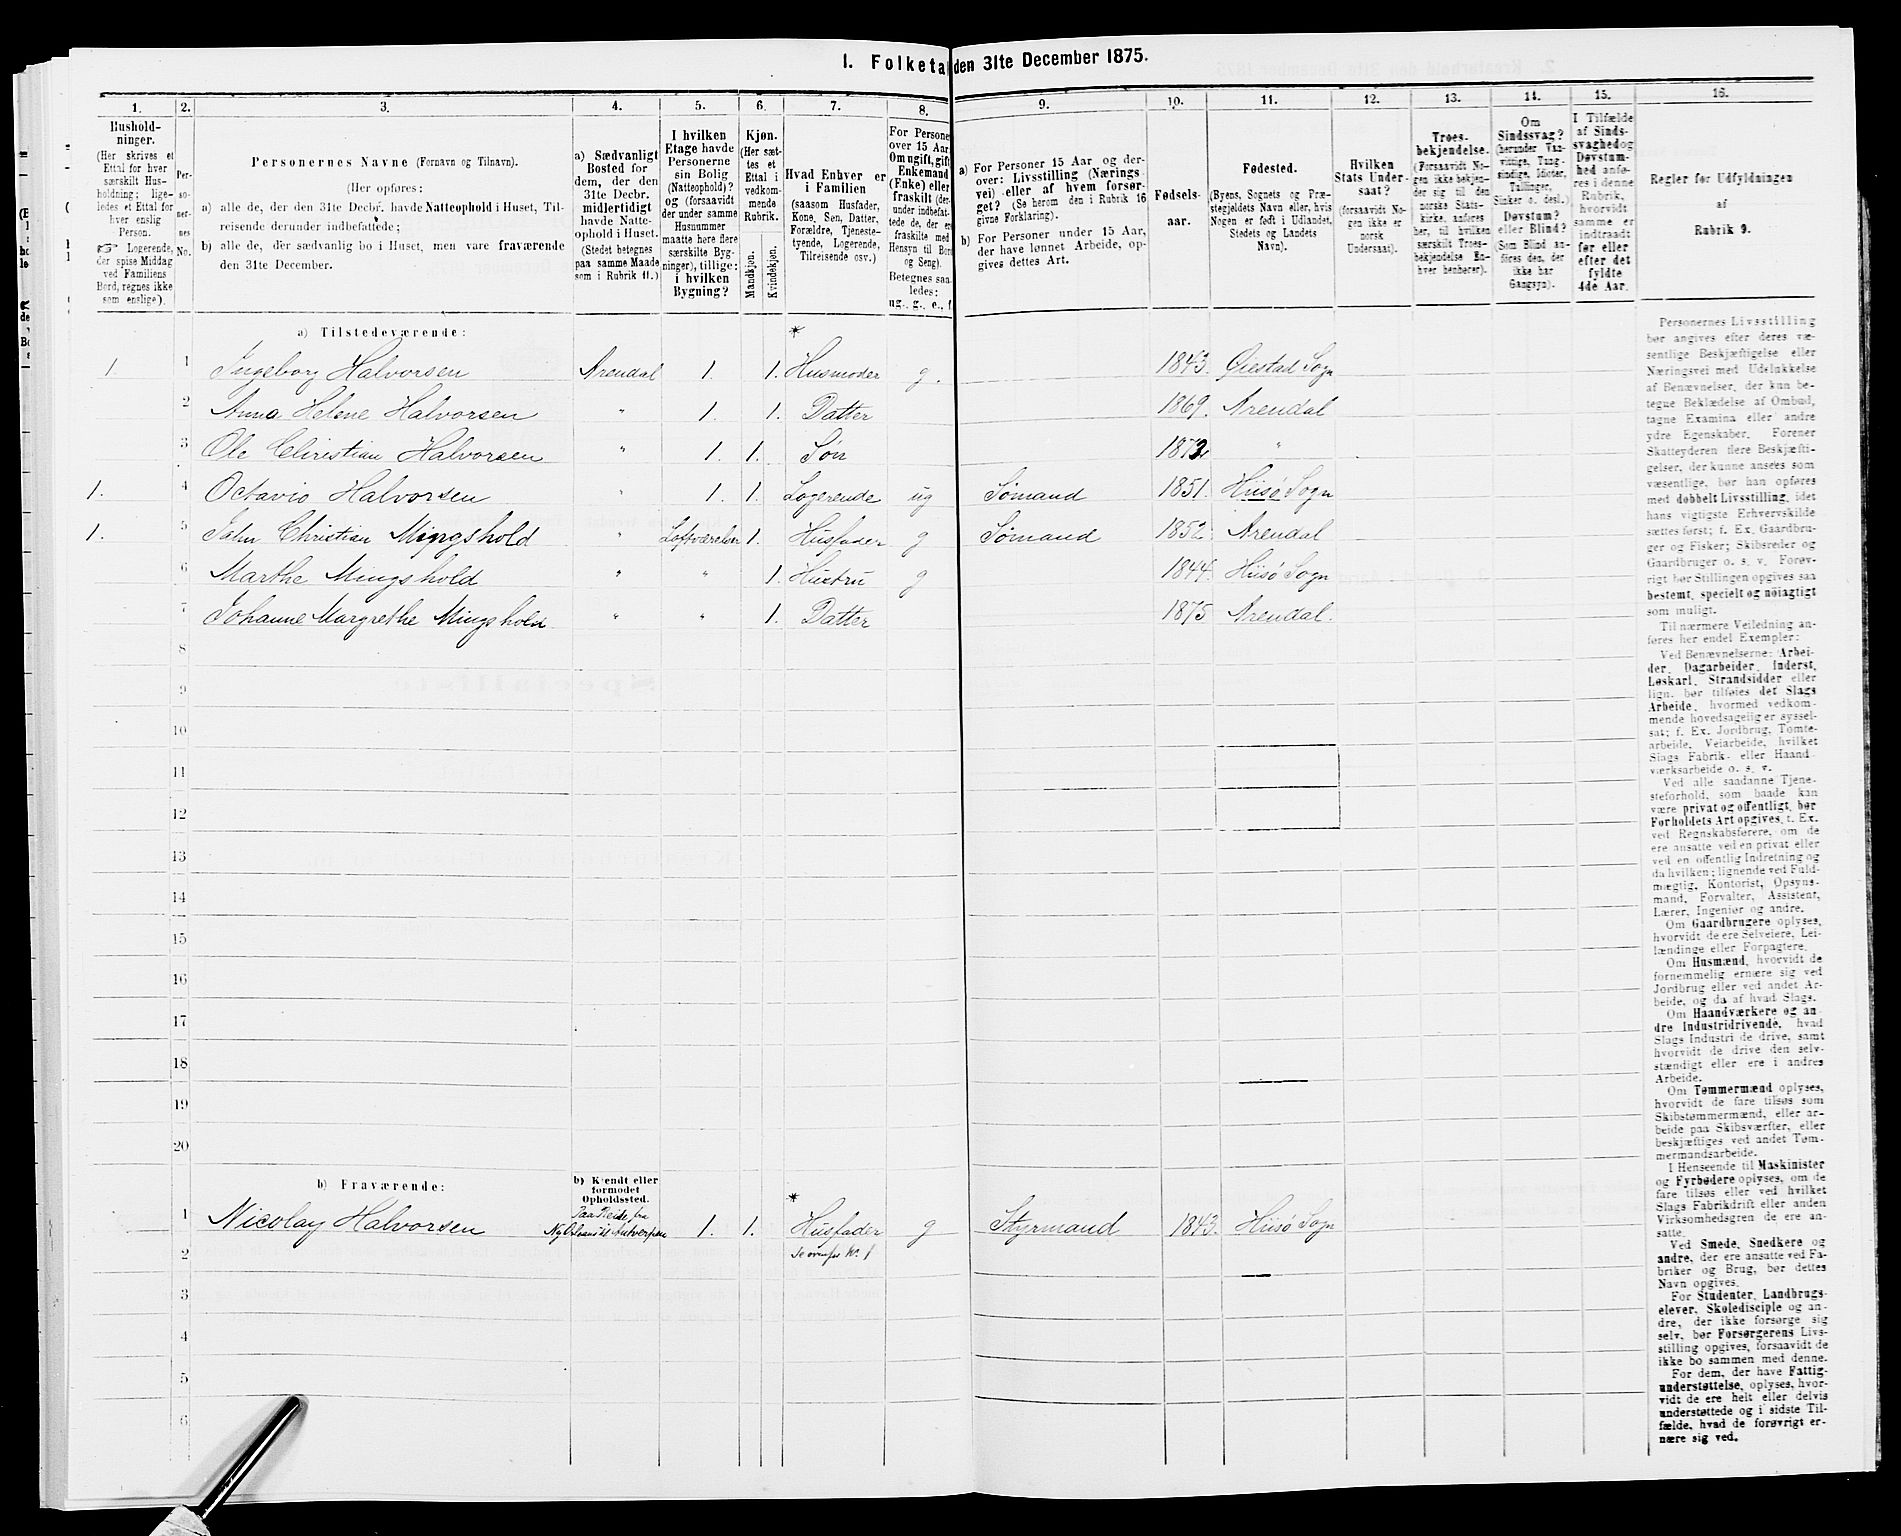 I. Folketal den 31te December 1875.
1. 2. 3. 4. 5. 6. 7. 8. 9. 10. 11. 12. 13. 14. 15. 16.
Husholdninger.
(Her skrives et
Ettal for hver
særskilt Husholdning;
ligeledes et Ettal for
hver enslig
Person.
☞ Logerende,
der spise Middag
ved Familiens
Bord, regnes ikke
som enslige).
Personernes
No.
Personernes Navne (Fornavn og Tilnavn).
(Her opføres:
a) alle de, der den 31te Decbr. havde Natteophold i Huset, Tilreisende derunder indbefattede;
b) alle de, der sædvanlig bo i Huset, men vare fraværende
den 31te December.
a) Sædvanligt
Bosted for
dem, der den
31te Decbr.
midlertidigt
havde Natteophold i Huset.
(Stedet betegnes
paa samme Maade
som i Rubrik 11.)
I hvilken
Etage havde
Personerne
sin Bolig
(Natteophold)?
og (forsaavidt
der under samme
Husnummer
maatte høre flere
særskilte Bygninger), tillige:
i hvilken
Bygning?
Kjøn.
(Her sættes et
Ettal i
vedkommende
Rubrik.
Mandkjøn.
Kvindekjøn.
Hvad Enhver er
i Familien
(saasom Husfader,
Kone, Søn, Datter,
Forældre, Tjenestetyende, Logerende,
Tilreisende osv.)
For Personer
over 15 Aar:
Om ugift, gift
Enkemand
(Enke) eller
fraskilt
Betegnes saaledes:
ug., g., e., f.
a) For Personer 15 Aar og derover: Livsstilling (Næringsvei) eller af hvem forsørget? (Se herom den i Rubrik 16
givne Forklaring).
b) For Personer under 15 Aar,
der have lønnet Arbeide, opgives dettes Art.
Fødselsaar.
Fødested.
(Byens, Sognets og Præstegjeldets Navn eller, hvis
Nogen er født i Udlandet,
Stedets og Landets
Navn).
Hvilken
Stats Undersaat?
(forsaavidt Nogen ikke er
norsk
Undersaat).
Troesbekjendelse.
(Forsaavidt Nogen ikke bekjender sig til den
norske Statskirke, anføres
her, til hvilken
særskilt Troesbekjendelse Enhver henhører).
Om
Sindssvag?
(herunder Vanvittige, Tungsindige, Idioter,
Tullinger,
Sinker o. desl.)
Døvstum?
eller Blind?
(Som Blind anføres den, der
ikke har
Gangsyn).
I Tilfælde
af Sindssvaghed og
Døvstumhed anføres i denne
Rubrik,
hvorvidt
samme er
indtraadt
før eller
efter det
fyldte
4de Aar.
Regler for Udfyldningen
af
Rubrik 9.
a) Tilstedeværende: *
1. 1 Ingeborg Halvorsen Arendal 1. 1. Husmoder g. 1843. Øiestad Sogn
2 Anna Helene Halvorsen " 1. 1. Datter 1869. Arendal
3 Ole Christian Halvorsen " 1. 1. Søn "
1. 4 Octavio Halvorsen " 1. 1. Logerende ug Sømand 1851. Hisø Sogn
1. 5 John Christian Mingshold " Loftværelse 1. Husfader g Sømand 1852. Arendal
6 Marthe Mingshold " " 1. Hustru g 1844. Hisø Sogn
7 Johanne Margrethe Mingshold " " 1. Datter 1875 Arendal.
8
9
10
11
12
13
14
15
16
17
18
19
20
b) Fraværende: b) Kjendt eller
formodet
Opholdssted. *
1 Nicolay Halvorsen Paa Reise fra
til Antwerpen 1. 1. Husfader g Styrmand 1843. Hisø Sogn
2 Se No. 1
3
4
5
6
Personernes Livsstilling
bør angives efter deres væsentlige Beskjæftigelse eller
Næringsvei med Udelukkelse
af Benævnelser, der kun betegne Beklædelse af Ombud,
tagne Examina eller andre
ydre Egenskaber. Forener
Skatteyderen flere Beskjæftigelser, der kunne ansees som
væsentlige, bør han opføres
med dobbelt Livsstilling, idet
hans vigtigste Erhvervskilde
sættes først; f. Ex. Gaardbruger og Fisker; Skibsreder og
Gaardbruger o. s. v. Forøvrigt bør Stillingen opgives saa
bestemt, specielt og nøiagtigt
som muligt.
Til nærmere Veiledning anføres her endel Exempler:
Ved Benævnelserne: Arbeider, Dagarbeider, Inderst,
Løskarl, Strandsidder eller
lign. bør tilføies det Slags
Arbeide, hvormed vedkommende hovedsagelig er sysselsat; f. Ex. Jordbrug, Tomtearbeide, Veiarbeide, hvilket
Slags Fabrik- eller Haandværksarbeide o. s. v.
Ved alle saadanne Tjenesteforhold, som baade kan
være privat og offentligt, bør
Forholdets Art opgives, f. Ex.
ved Regnskabsførere, om de
ere ansatte ved en privat eller
ved en offentlig Indretning og
da hvilken; lignende ved Fuldmægtig, Kontorist, Opsynsmand, Forvalter, Assistent,
Lærer, Ingeniør og andre.
Om Gaardbrugere oplyses,
hvorvidt de ere Selveiere, Leilændinge eller Forpagtere.
Om Husmænd, hvorvidt de
fornemmelig ernære sig ved
Jordbrug eller ved andet Arbeide, og da af hvad Slags.
Om Haandværkere og andre Industridrivende, hvad
Slags Industri de drive, samt
hvorvidt de drive den selvstændigt eller ere i andres
Arbeide.
Om Tømmermænd oplyses,
hvorvidt de fare tilsøs som
Skibstømmermænd, eller arbeide paa Skibsværfter, eller
beskjæftiges ved andet Tømmermandsarbeide.
I Henseende til Maskinister
og Fyrbødere oplyses, om de
fare tilsøs eller ved hvilket
Slags Fabrikdrift eller anden
Virksomhedsgren de ere ansatte.
Ved Smede, Snedkere og
andre, der ere ansatte ved Fabriker og Brug, bør dettes
Navn opgives.
For Studenter, Landbrugselever, Skoledisciple og andre, der ikke forsørge sig
selv, bør Forsørgerens Livsstilling opgives, forsaavidt de
ikke bo sammen med denne.
For dem, der have Fattigunderstøttelse, oplyses, hvorvidt de ere helt eller delvis
understøttede og i sidste Tilfælde, hvad de forøvrigt ernære sig ved.